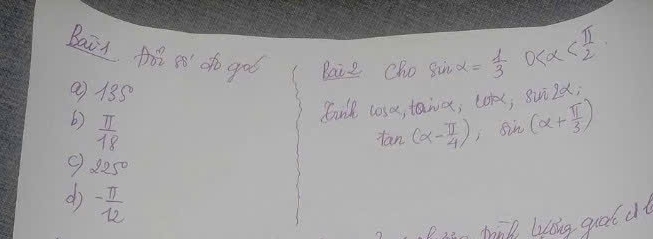 Bài 1 Đổi số đo góc
a) 135°
b) π/18
c) 225°
d) -π/12
Bài 2 Cho sin α = 1/3 0 < α < π/2.
Tính cos α, tan α, cot α, sin 2α,
tan (α - π/4), sin (α + π/3)
lượng giác